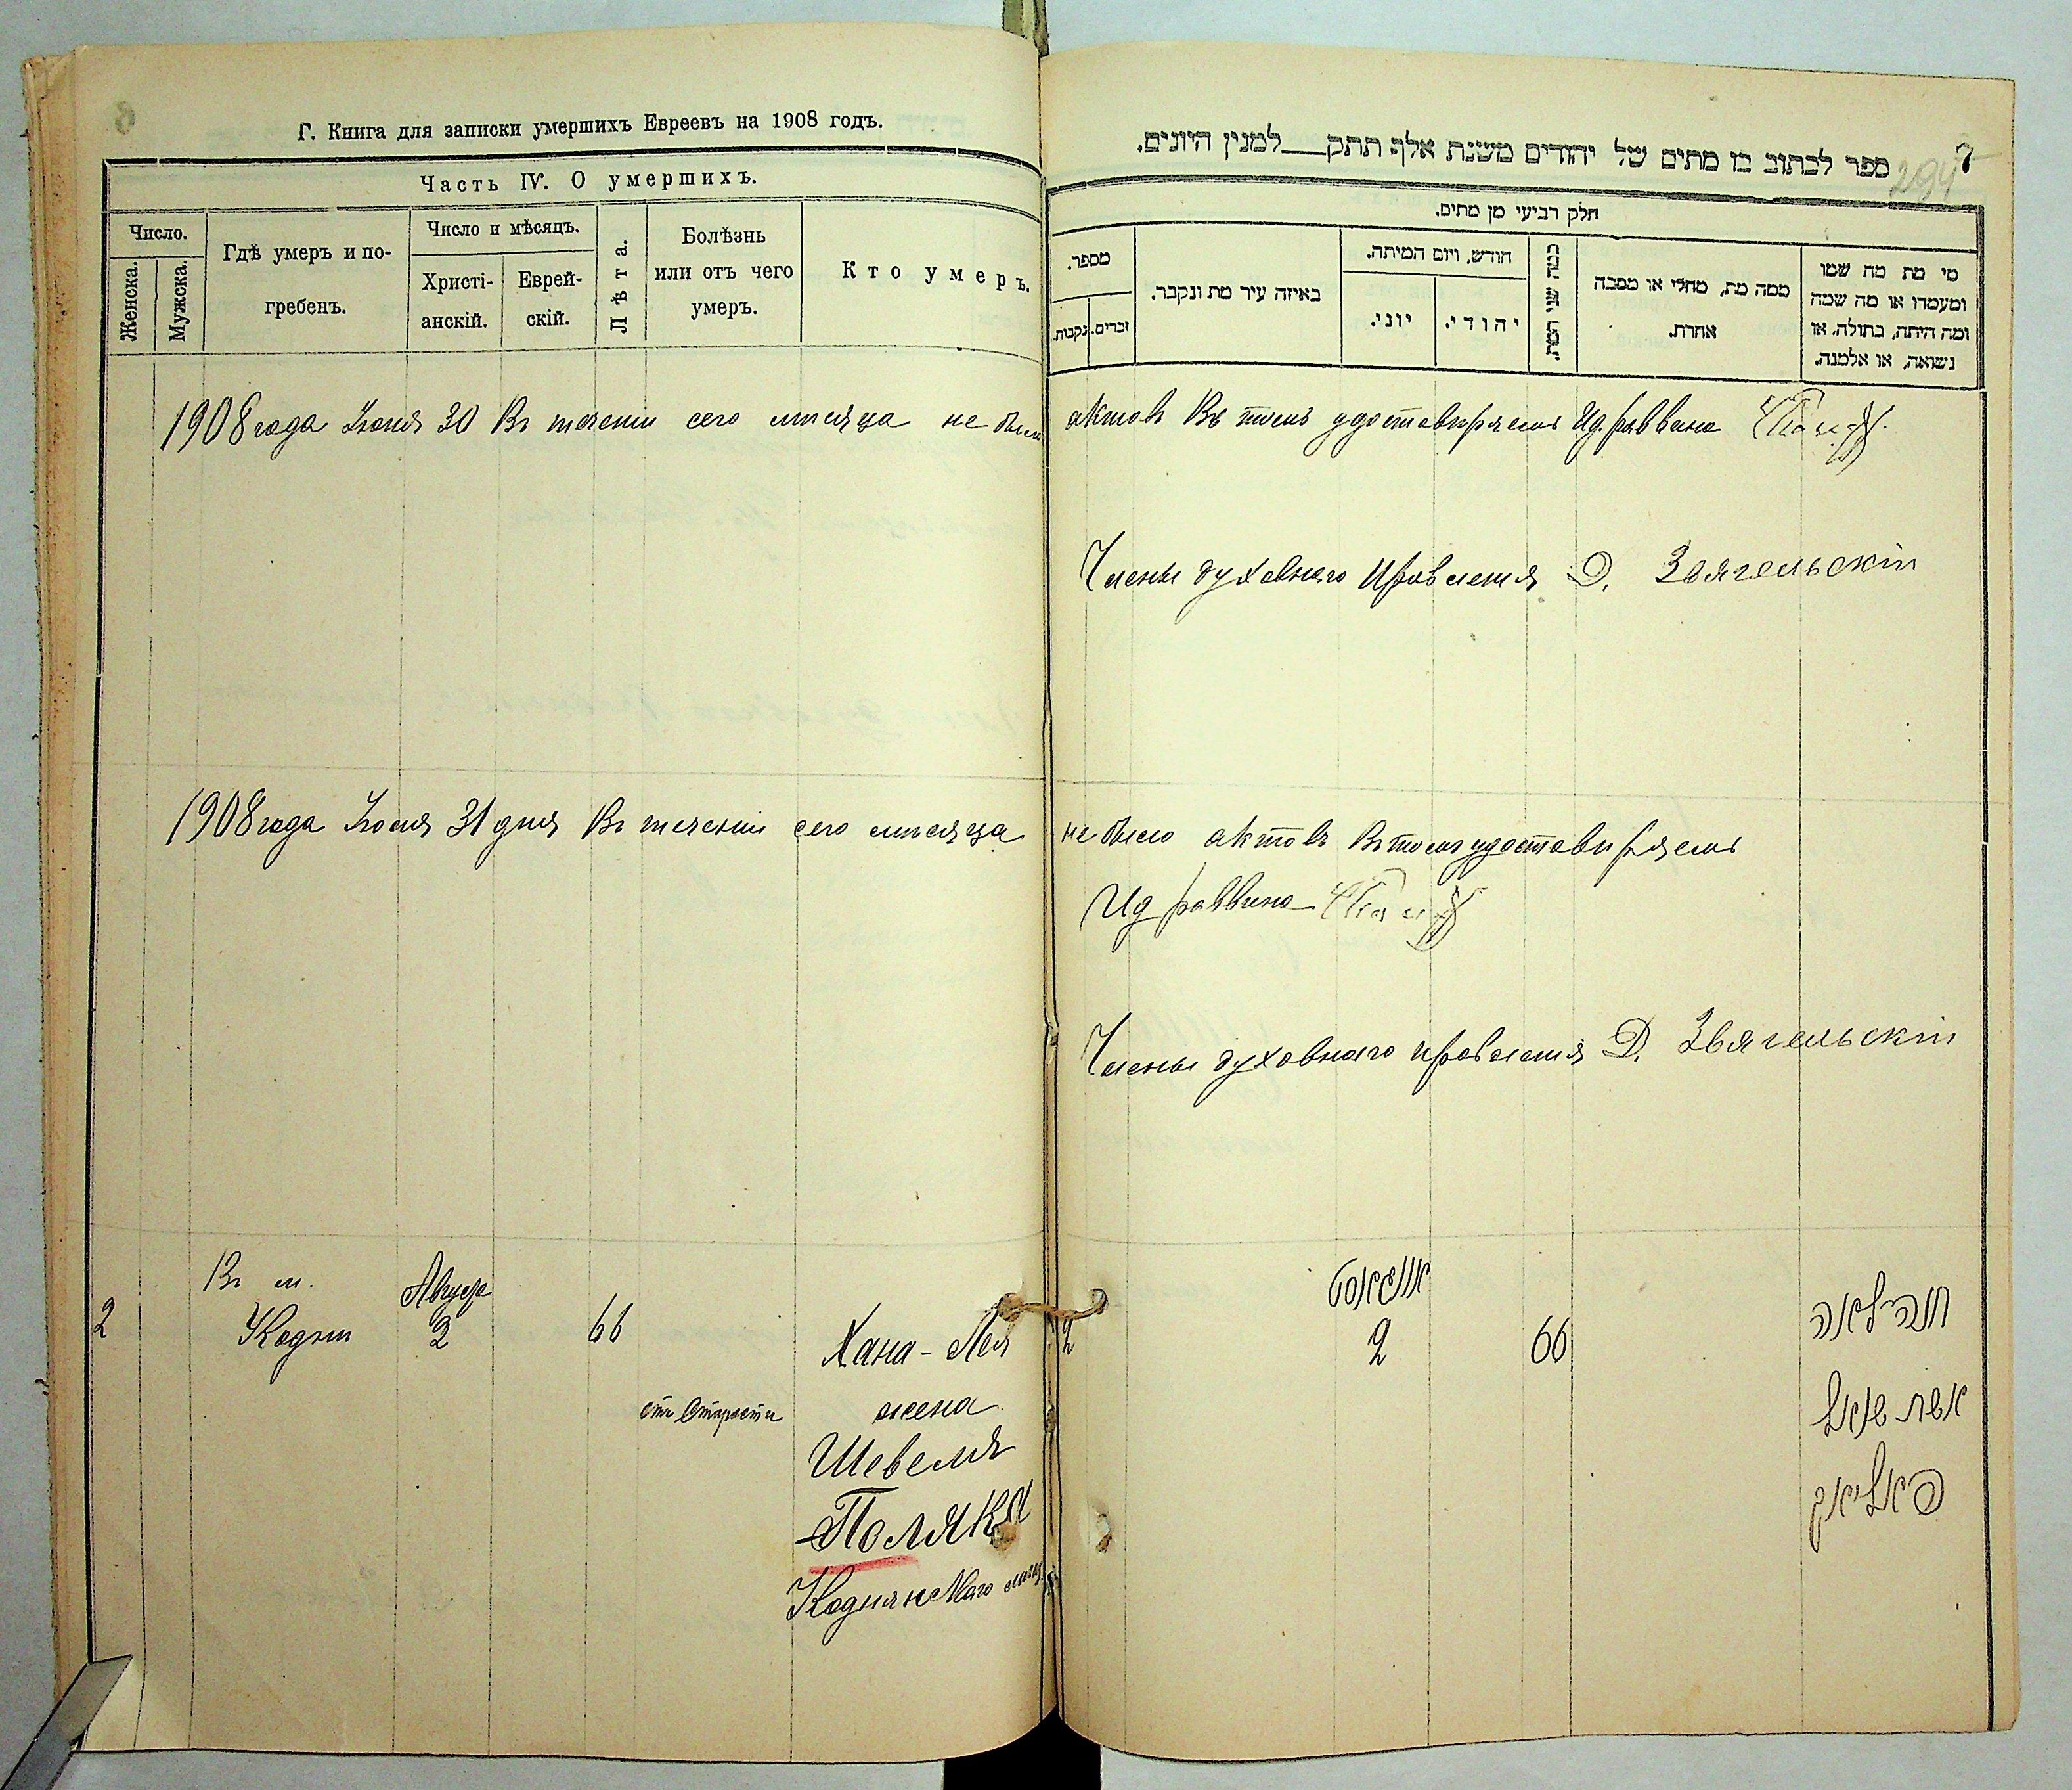 Г. Книга для записки умершихъ Евреевъ на 1908 годъ.
Часть IV. О умершихъ.
Число.
Женска.
Мужска.
Гдѣ умеръ и по-
гребенъ.
Число и мѣсяцъ.
Христі-
анскій.
Еврей-
скій.
Лѣта.
Болѣзнь
или отъ чего
умеръ.
Кто умеръ.
7
294
ספר לכתוב בו מתים של יהודים משנת אלף תתק___למנין היונים.
חלק רביעי מן מתים.
מספר.
נקבות.
זכרים.
באיזה עיר מת ונקבר.
חודש, ויום המיתה.
יוני.
יהודי.
כמה שני המת.
ממה מת, מחלי או מסבה
אחרת.
מי מת מה שמו
ומעמדו או מה שמה
ומה היתה, בתולה, או
נשואה, או אלמנה.
1908 года Іюня 30 Въ теченіи сего мѣсяца не было актовъ Въ томъ удостовѣряемъ Ид. раввина
Члены духовнаго Правленія Д. Звягельскій
1908 года Іюля 31 дня Въ теченіи сего мѣсяца не было актовъ Въ томъ удостовѣряемъ
Ид раввина
Члены духовнаго правленія Д. Звягельскій
2
Въ м.
Кодни
Августа
2
66
отъ Старости
Хана-Лея
жена
Шевеля
Поляка
Коднянскаго мѣщ
2
אווגאוסט
2
66
חנה לאה
אשת שאול
פאליאק